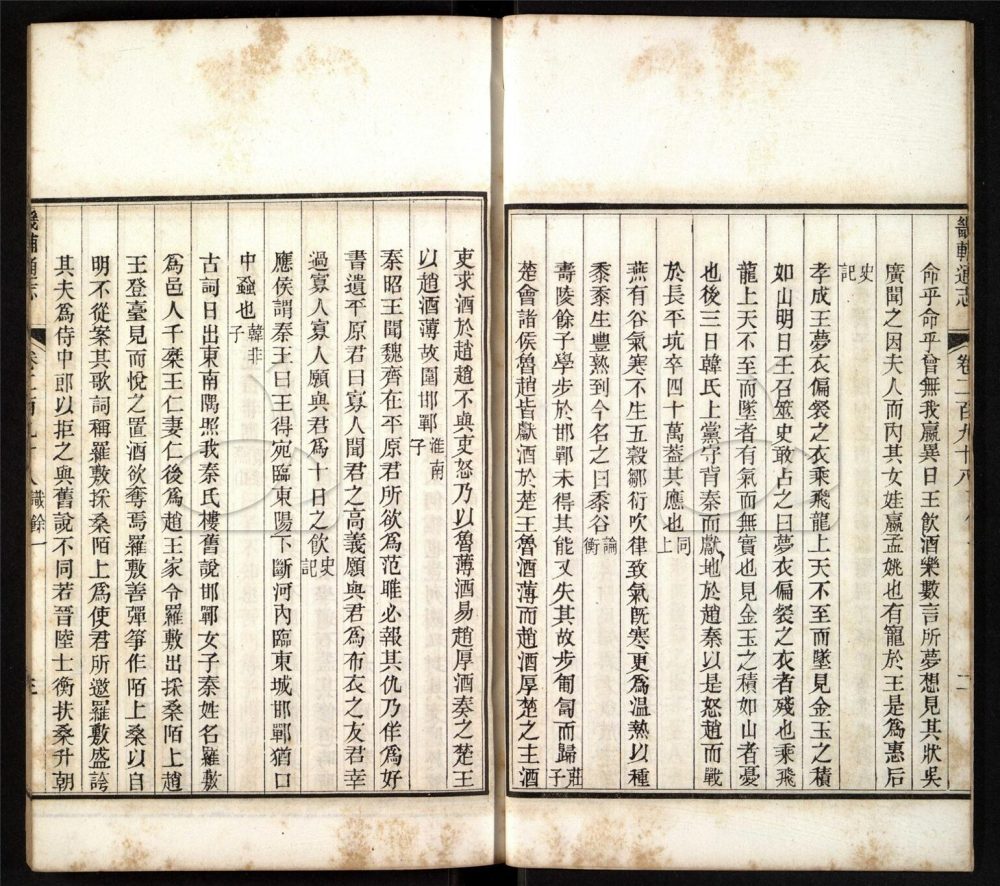 畿輔通志
卷二百九十八
二
命乎命乎曾無我嬴異日王飲酒樂數言所夢想見其狀吳
廣聞之因夫人而內其女姓嬴孟姚也有寵於王是爲惠后
史記
孝成王夢衣偏裻之衣乘飛龍上天不至而墜見金玉之積
如山明日王召筮史敢占之曰夢衣偏裻之衣者殘也乘飛
龍上天不至而墜者有氣而無實也見金玉之積如山者憂
也後三日韓氏上黨守背秦而獻地於趙秦以是怒趙而戰
於長平坑卒四十萬葢其應也同上
燕有谷氣寒不生五穀鄒衍吹律致氣旣寒更爲温熱以種
黍黍生豐熟到今名之曰黍谷論衡
壽陵餘子學步於邯鄲未得其能又失其故步匍匐而歸莊子
楚會諸侯魯趙皆獻酒於楚王魯酒薄而趙酒厚楚之主酒
吏求酒於趙趙不與吏怒乃以魯薄酒易趙厚酒奏之楚王
以趙酒薄故圍邯鄲淮南子
秦昭王聞魏齊在平原君所欲爲范睢必報其仇乃佯爲好
書遺平原君曰寡人聞君之高義願與君爲布衣之友君幸
過寡人寡人願與君爲十日之飲史記
應侯謂秦王曰王得宛臨東陽下斷河內臨東城邯鄲猶口
中蝨也韓非子
古詞日出東南隅照我秦氏樓舊說邯鄲女子秦姓名羅敷
爲邑人千乘王仁妻仁後爲趙王家令羅敷出採桑陌上趙
王登臺見而悅之置酒欲奪焉羅敷善彈箏作陌上桑以自
明不從案其歌詞稱羅敷採桑陌上爲使君所邀羅敷盛誇
其夫爲侍中郎以拒之與舊說不同若晉陸士衡扶桑升朝
畿輔通志
卷二百九十八 識餘一